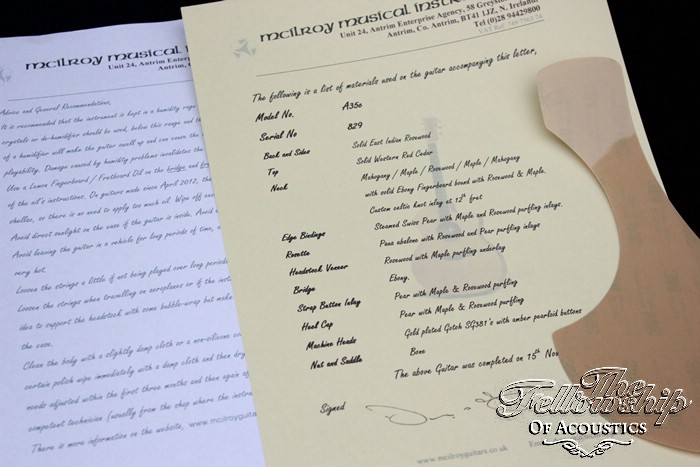 mcilroy musical inst
Unit 24, Antrim Enterprise Agency, 58 Greyst
Antrim, Co. Antrim, BT41 1JZ, N. Ireland
Tel (0)28 94429800
The following is a list of materials used on the guitar accompanying this letter,
Model No. A35c
Serial No 829
Back and Sides Solid East Indian Rosewood
Top Solid Western Red Cedar
Neck Mahogany / Maple / Rosewood / Maple / Mahogany
with solid Ebony Fingerboard bound with Rosewood & Maple.
Custom celtic knot inlay at 12th fret
Edge Bindings Steamed Swiss Pear with Maple and Rosewood purfling inlays.
Rosette Paua abalone with Rosewood and Pear purfling inlays
Headstock Veneer Rosewood with Maple purfling underlay
Bridge Ebony.
Strap Button Inlay Pear with Maple & Rosewood purfling
Heel Cap Pear with Maple & Rosewood purfling
Machine Heads Gold plated Gotoh SG381's with amber pearloid buttons
Nut and Saddle Bone
The above Guitar was completed on 15th Nov
Signed
www.mcilroyguitars.co.uk
mcilroy musical
Unit 24, Antrim Enterprise
Antrim,
Advice and General Recommendations,
It is recommended that the instrument is kept in a humidity regu
crystals or de-humidifier should be used, below this range and th
of a humidifier will make the guitar swell up and can cause the
playability. Damage caused by humidity problems invalidates the
Use a Lemon Fingerboard / Fretboard Oil on the bridge and
of the oil's instructions. On guitars made since April 2012, the
shellac, so there is no need to apply too much oil. Wipe off
Avoid direct sunlight on the case if the guitar is inside. Avoid
Avoid leaving the guitar in a vehicle for long periods of time,
very hot.
Loosen the strings a little if not being played over long periods
Loosen the strings when travelling on aeroplanes or if the instru
idea to support the headstock with some bubble-wrap but make
the case.
Clean the body with a slightly damp cloth or a non-silicone
certain polish wipe immediately with a damp cloth and then dry
needs adjusted within the first three months and then again
competent technician (usually from the shop where the instru
There is more information on the website, www.mcilroyguitars
The
Fellowship
Of Acoustics